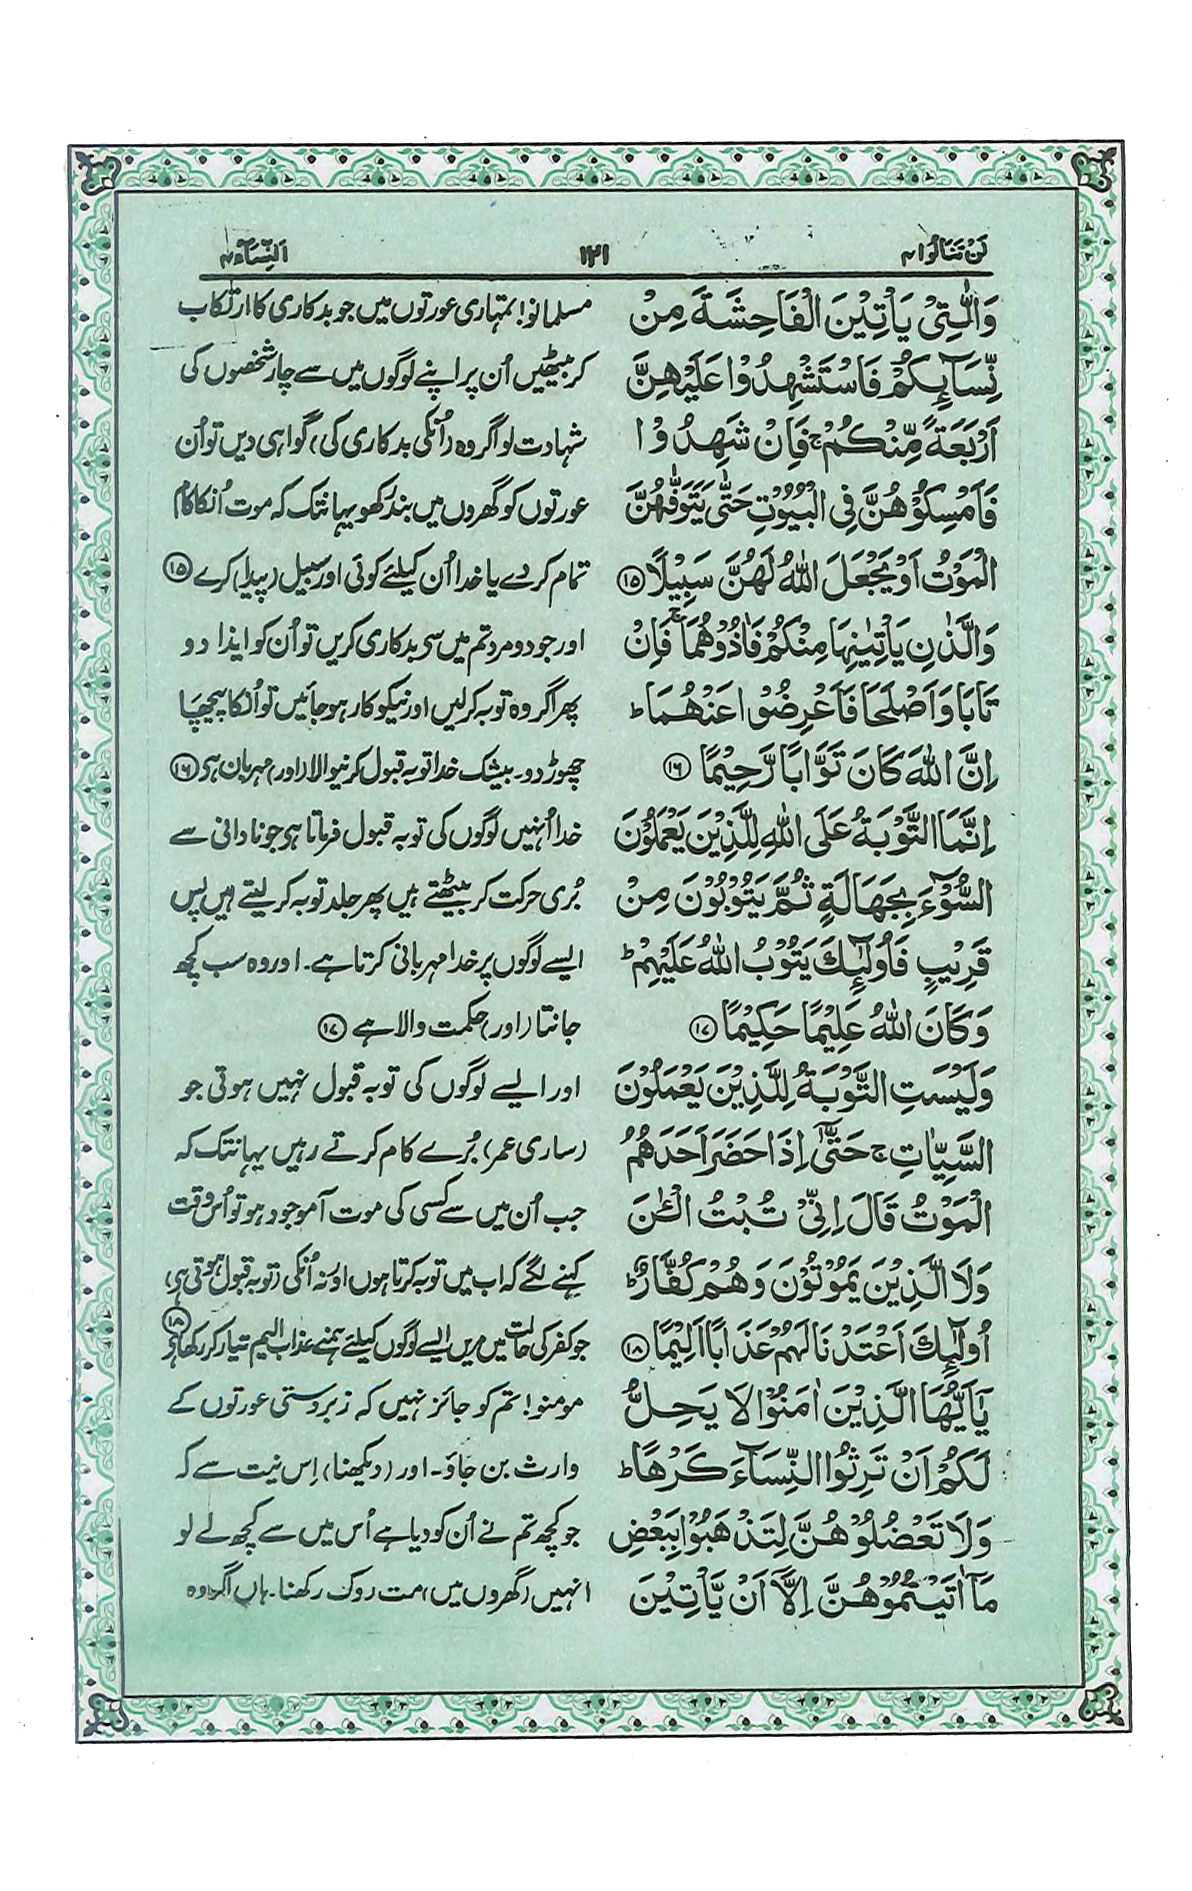 لَنْ تَنَالُوا ٤
١٢١
اَلنِّسَآء ٤
وَالّٰتِیْ یَاْتِیْنَ الْفَاحِشَةَ مِنْ
نِّسَآىِٕكُمْ فَاسْتَشْهِدُوْا عَلَیْهِنَّ
اَرْبَعَةً مِّنْكُمْ ۚ فَاِنْ شَهِدُوْا
فَاَمْسِكُوْهُنَّ فِی الْبُیُوْتِ حَتّٰی یَتَوَفّٰهُنَّ
الْمَوْتُ اَوْ یَجْعَلَ اللّٰهُ لَهُنَّ سَبِیْلًا ⑮
وَالَّذٰنِ یَاْتِیٰنِهَا مِنْكُمْ فَاٰذُوْهُمَا ۚ فَاِنْ
تَابَا وَاَصْلَحَا فَاَعْرِضُوْا عَنْهُمَا ؕ
اِنَّ اللّٰهَ كَانَ تَوَّابًا رَّحِیْمًا ⑯
اِنَّمَا التَّوْبَةُ عَلَی اللّٰهِ لِلَّذِیْنَ یَعْمَلُوْنَ
السُّوْٓءَ بِجَهَالَةٍ ثُمَّ یَتُوْبُوْنَ مِنْ
قَرِیْبٍ فَاُولٰٓىِٕكَ یَتُوْبُ اللّٰهُ عَلَیْهِمْ ؕ
وَكَانَ اللّٰهُ عَلِیْمًا حَكِیْمًا ⑰
وَلَیْسَتِ التَّوْبَةُ لِلَّذِیْنَ یَعْمَلُوْنَ
السَّیِّاٰتِ ۚ حَتّٰۤی اِذَا حَضَرَ اَحَدَهُمُ
الْمَوْتُ قَالَ اِنِّیْ تُبْتُ الْـٰٔنَ
وَلَا الَّذِیْنَ یَمُوْتُوْنَ وَهُمْ كُفَّارٌ ؕ
اُولٰٓىِٕكَ اَعْتَدْنَا لَهُمْ عَذَابًا اَلِیْمًا ⑱
یٰۤاَیُّهَا الَّذِیْنَ اٰمَنُوْا لَا یَحِلُّ
لَكُمْ اَنْ تَرِثُوا النِّسَآءَ كَرْهًا ؕ
وَلَا تَعْضُلُوْهُنَّ لِتَذْهَبُوْا بِبَعْضِ
مَاۤ اٰتَیْتُمُوْهُنَّ اِلَّاۤ اَنْ یَّاْتِیْنَ
مسلمانو! تمہاری عورتوں میں جو بدکاری کا ارتکاب
کر بیٹھیں اُن پر اپنے لوگوں میں سے چار شخصوں کی
شہادت لو اگر وہ (اُنکی بدکاری کی) گواہی دیں تو اُن
عورتوں کو گھروں میں بند رکھو یہانتک کہ موت اُنکا کام
تمام کردے یا خدا اُن کیلئے کوئی اور سبیل (پیدا) کرے ⑮
اور جو دو مرد تم میں سے بدکاری کریں تو اُن کو ایذا دو
پھر اگر وہ توبہ کرلیں اور نیکوکار ہوجائیں تو اُنکا پیچھا
چھوڑ دو۔ بیشک خدا توبہ قبول کرنیوالا (اور) مہربان ہی ⑯
خدا اُنہیں لوگوں کی توبہ قبول فرماتا ہی جو نادانی سے
بُری حرکت کر بیٹھتے ہیں پھر جلد توبہ کرلیتے ہیں پس
ایسے لوگوں پر خدا مہربانی کرتا ہے۔ اور وہ سب کچھ
جانتا (اور) حکمت والا ہے ⑰
اور ایسے لوگوں کی توبہ قبول نہیں ہوتی جو
(ساری عمر) بُرے کام کرتے رہیں یہانتک کہ
جب اُن میں سے کسی کی موت آموجود ہو تو اُس وقت
کہنے لگے کہ اب میں توبہ کرتا ہوں اور نہ اُنکی (توبہ قبول ہوتی ہی)
جو کفر کی حالت میں مریں ایسے لوگوں کیلئے ہمنے عذاب الیم تیار کر رکھا ہی ⑱
مومنو! تم کو جائز نہیں کہ زبردستی عورتوں کے
وارث بن جاؤ۔ اور (دیکھنا) اِس نیت سے کہ
جو کچھ تم نے اُن کو دیا ہے اُس میں سے کچھ لے لو
انہیں (گھروں میں) مت روک رکھنا۔ ہاں اگر وہ